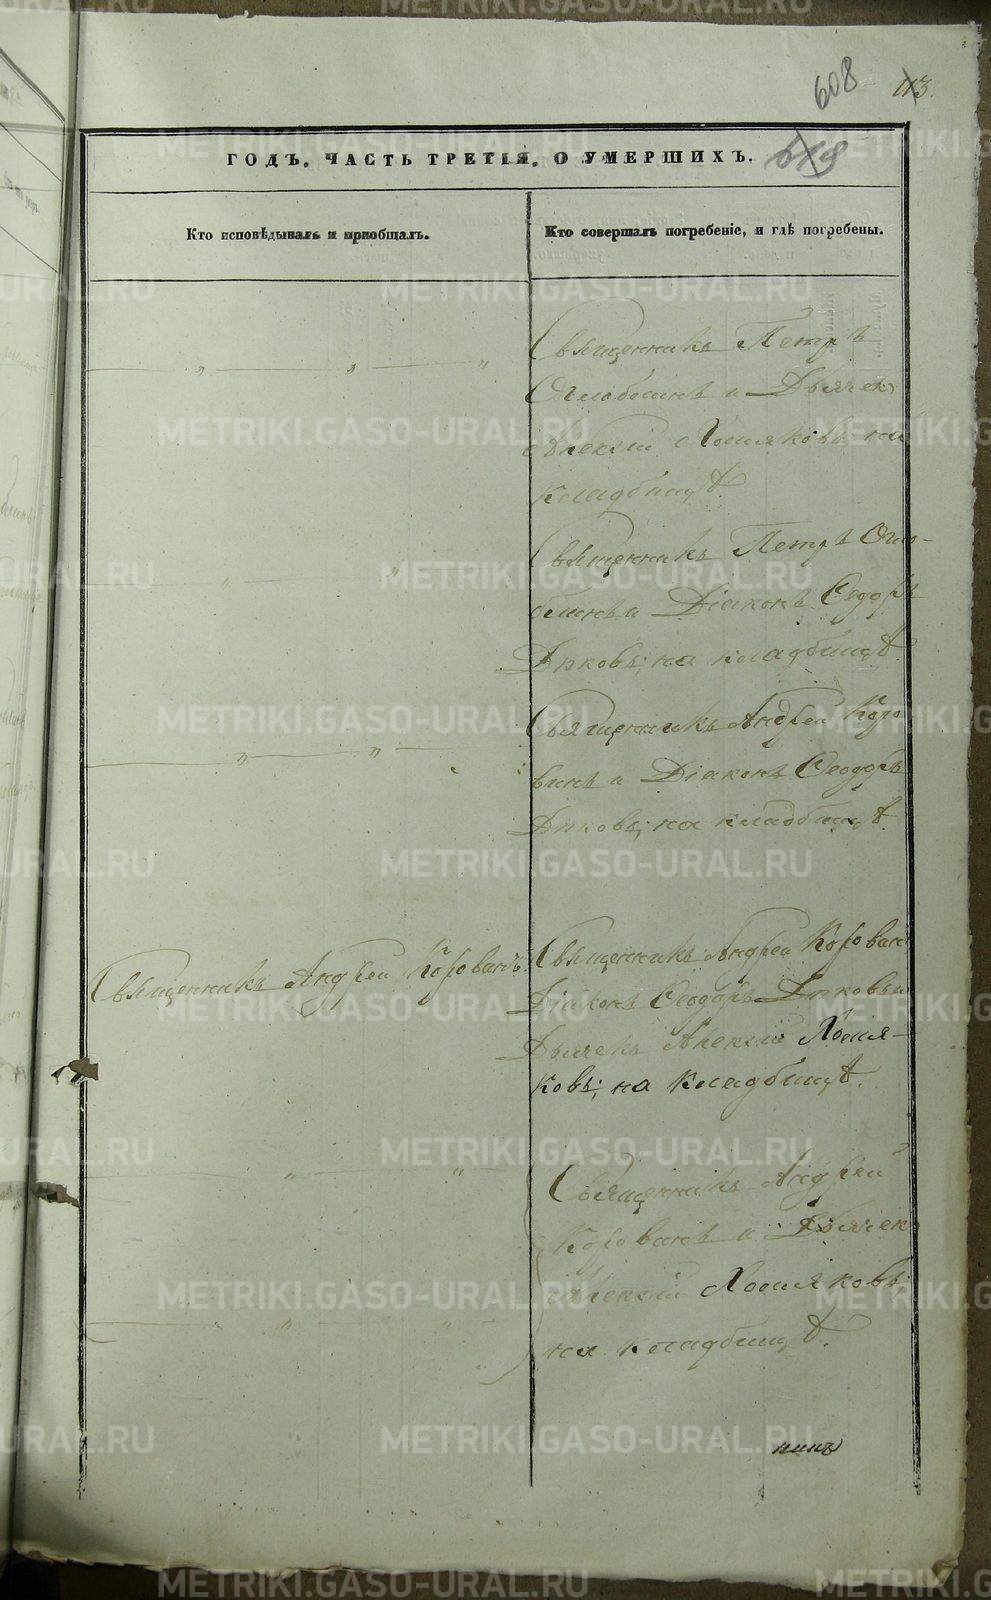 608
113.
ГОДЪ. ЧАСТЬ ТРЕТІЯ. О УМЕРШИХЪ.
Кто исповѣдывалъ и приобщалъ.
Кто совершалъ погребеніе, и гдѣ погребены.
Священникъ Петръ
Оглоблинъ и Дьячек
Алексій Хомяковъ на
кладбищѣ.
Священникъ Петръ Огло-
блинъ и Діаконъ Ѳедоръ
на кладбищѣ.
Священникъ Андрей Коро
винъ и Діаконъ Ѳеодоръ
на кладбищѣ.
Священникъ Андрей Коровинъ.
Священникъ Андрей Коровин
Діаконъ Ѳеодоръ
Дьячекъ Алексій Хомя-
ковъ; на кладбищѣ.
Священникъ Андрей
Коровинъ и Дьячек
Алексій Хомяковъ
на кладбищѣ.
METRIKI.GASO-URAL.RU